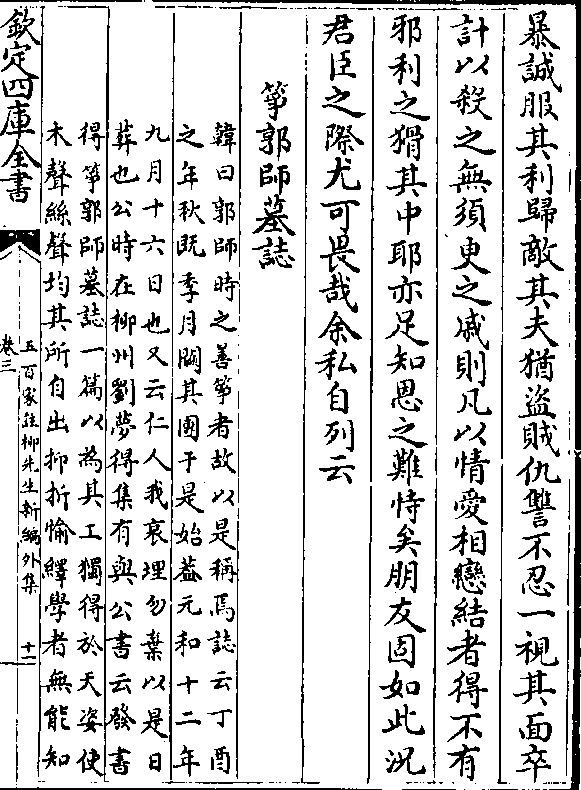 暴誠服其利歸敵其夫猶盜賊仇讐不忍一視其面卒
計以殺之無須臾之戚則凡以情愛相戀結者得不有
邪利之猾其中耶亦足知恩之難恃矣朋友固如此况
君臣之際尤可畏哉余私自列云
筝郭師墓誌
韓曰郭師時之善筝者故以是稱焉誌云丁酉
之年秋既季月闕其團于是始葢元和十二年
九月十六日也又云仁人我哀埋勿棄以是日
葬也公時在柳州劉夢得集有與公書云發書
得筝郭師墓誌一篇以為其工獨得於天姿使
木聲絲聲均其所自出抑折愉繹學者無能知
欽定四庫全書
卷三
五百家註柳先生新編外集
十一